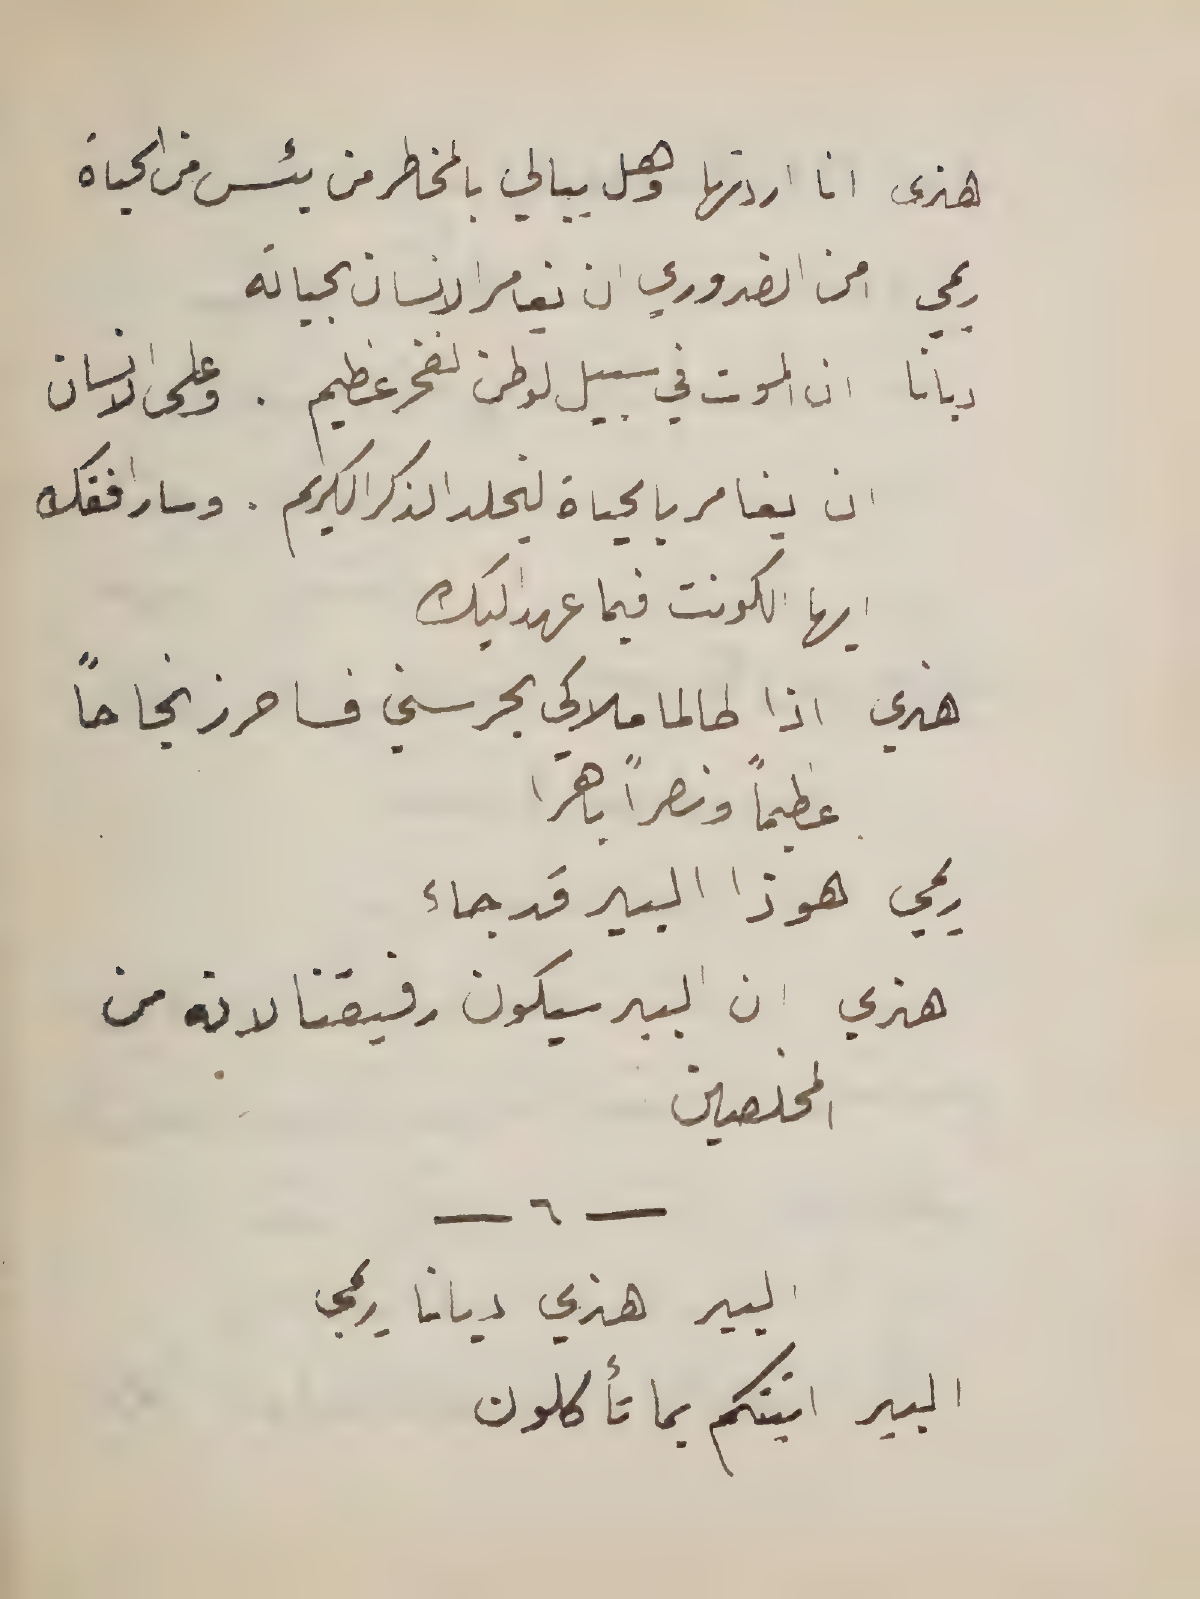 هنري انا اردتها وهل يبالي بالمخاطر من يئس من الحياة
ريمي امن الضروري ان يغامر الانسان بحياته
ديانا ان الموت في سبيل لوطن لفخر عظيم . وعلى الانسان
ان يغامر بالحياة ليخلد الذكر الكريم . وسارافقك
ايها الكونت فيما عهد اليك
هنري اذا طالما ملاكي يحرسني فساحرز نجاحاً
عظيماً ونصراً باهرا
ريمي هوذا البير قد جاء
هنري ان البير سيكون رفيقنا لانه من
المخلصين
— ٦ —
البير هنري ديانا ريمي
البير اتيتكم بما تأكلون